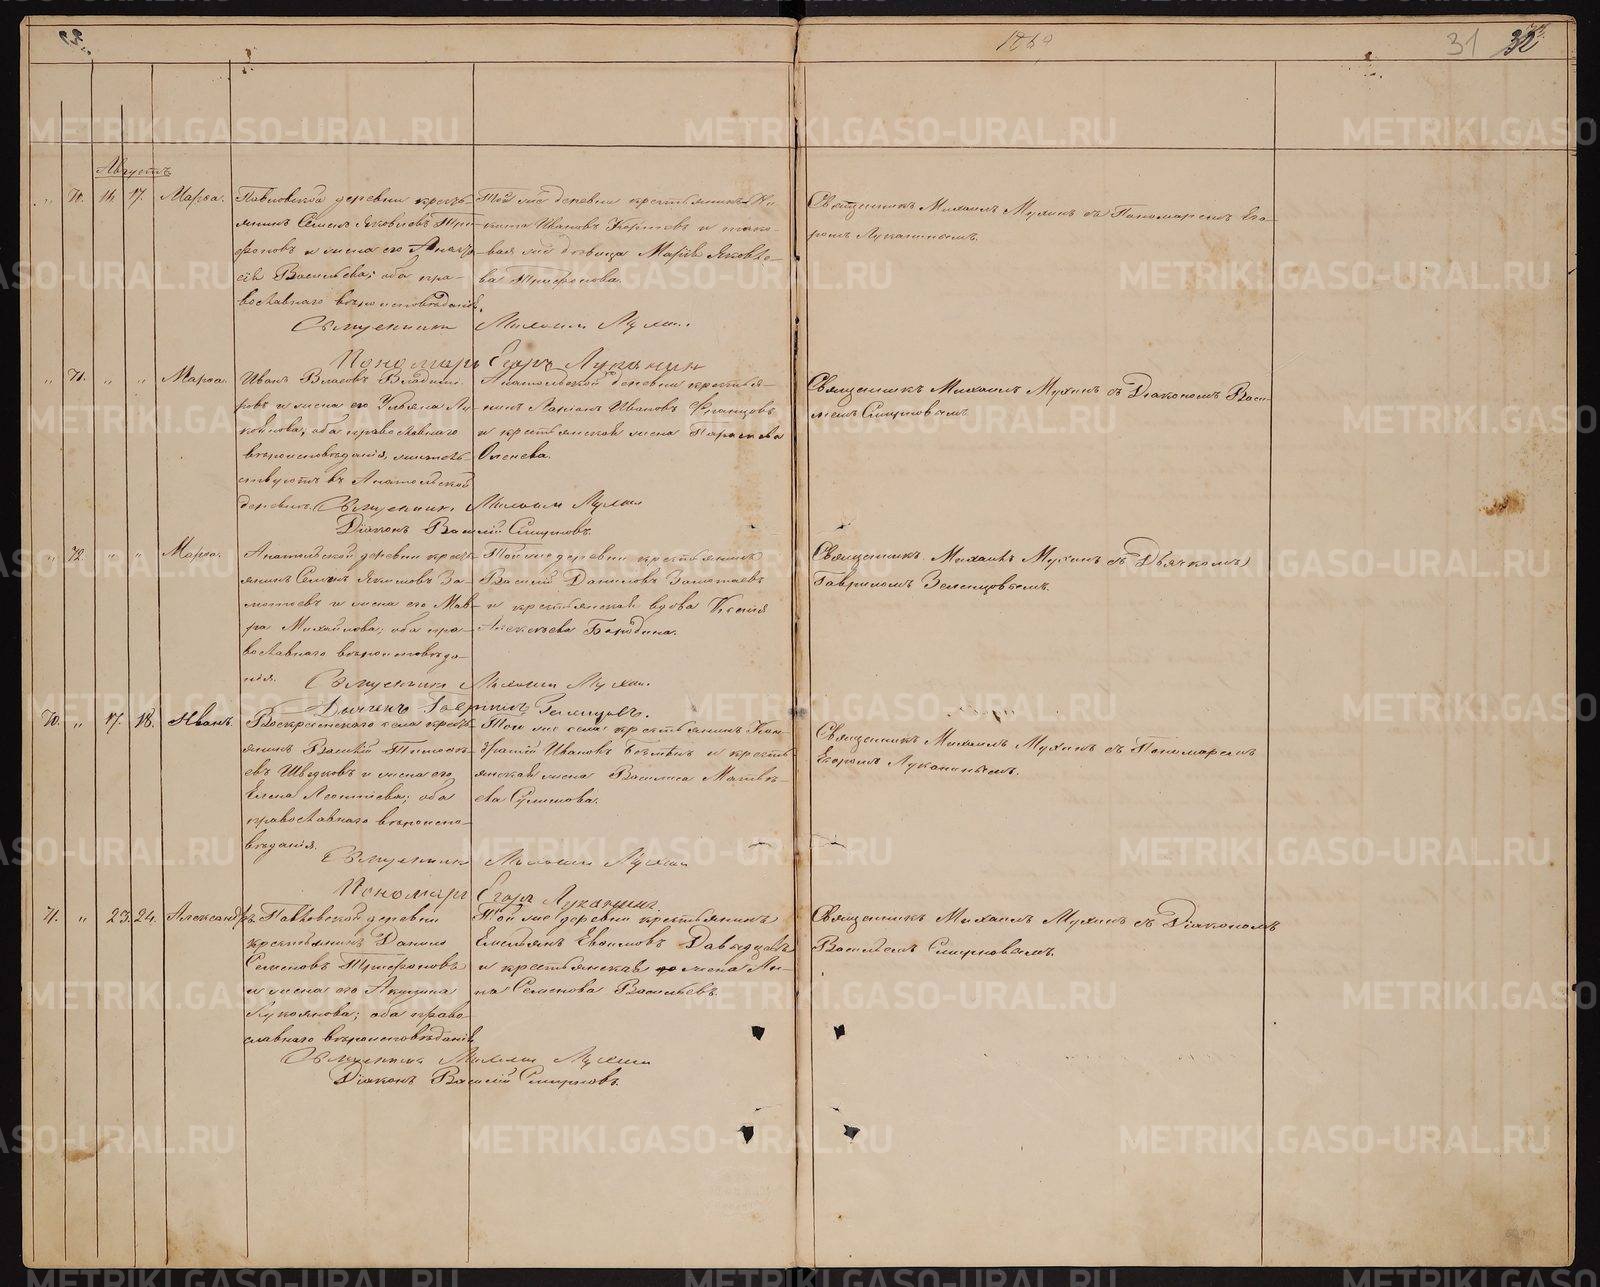 1869
31 32
Августъ
70. 16 17. Марѳа.
Павловской деревни кресть-
янинъ Семенъ Яковлевъ Три-
фоновъ и жена его Анаста-
сія Васильева; оба пра-
вославнаго вѣроисповѣданія.
Той же деревни крестьянинъ Ни-
кита Ивановъ и тако-
вая же дѣвица Марія Яковле-
ва Трифонова.
Священникъ Михаилъ Мухинъ съ Пономаремъ Его-
ромъ Луканинымъ.
Священникъ Михаилъ Мухинъ
Пономарь Егоръ Луканин
71. " " Марѳа.
Иванъ Власовъ Владими-
ровъ и жена его Ульяна Лу-
коянова; оба православнаго
вѣроисповѣданія, житель-
ствуютъ въ Анатольской
деревнѣ.
Анатольской деревни крестья-
нинъ Ларіонъ Ивановъ
и крестьянская жена Параскева
Священникъ Михаилъ Мухинъ съ Діакономъ Васи-
ліемъ Смирновымъ.
Священникъ Михаилъ Мухинъ
Діаконъ Василій Смирновъ
72. " " Марѳа.
Анатольской деревни кресть-
янинъ Семенъ Якимовъ За-
мотаевъ и жена его Мав-
ра Михайлова; оба пра-
вославнаго вѣроисповѣда-
нія.
Той же деревни крестьянинъ
Василій Даниловъ Замотаевъ
и крестьянская вдова Ксенія
Алексѣева Бородина.
Священникъ Михаилъ Мухинъ съ Дьячкомъ
Гавріиломъ Зеленцовымъ.
Священникъ Михаилъ Мухинъ
Дьячекъ Гавріилъ Зеленцовъ.
70. " 17. 18. Иванъ.
Воскресенскаго села кресть-
янинъ Василій Тимоѳе-
евъ Шведковъ и жена его
Елена Леонтіева; оба
православнаго вѣроиспо-
вѣданія.
Той же села крестьянинъ Кон-
дратій Ивановъ и кресть-
янская жена Василиса Матвѣ-
ева Сулимова.
Священникъ Михаилъ Мухинъ съ Пономаремъ
Егоромъ Луканинымъ.
Священникъ Михаилъ Мухин
Пономарь Егоръ Луканинъ.
71. " 23. 24. Александръ.
Павловской деревни
крестьянинъ Данило
Семеновъ Трифоновъ
и жена его Акилина
Лукоянова; оба право-
славнаго вѣроисповѣданія.
Той же деревни крестьянинъ
Емельянъ Евѳимовъ Давыдовъ
и крестьянская жена Ан-
на Семенова Васильевъ.
Священникъ Михаилъ Мухинъ съ Діакономъ
Васильемъ Смирновымъ.
Священникъ Михаилъ Мухин
Діаконъ Василій Смирновъ.
METRIKI.GASO-URAL.RU